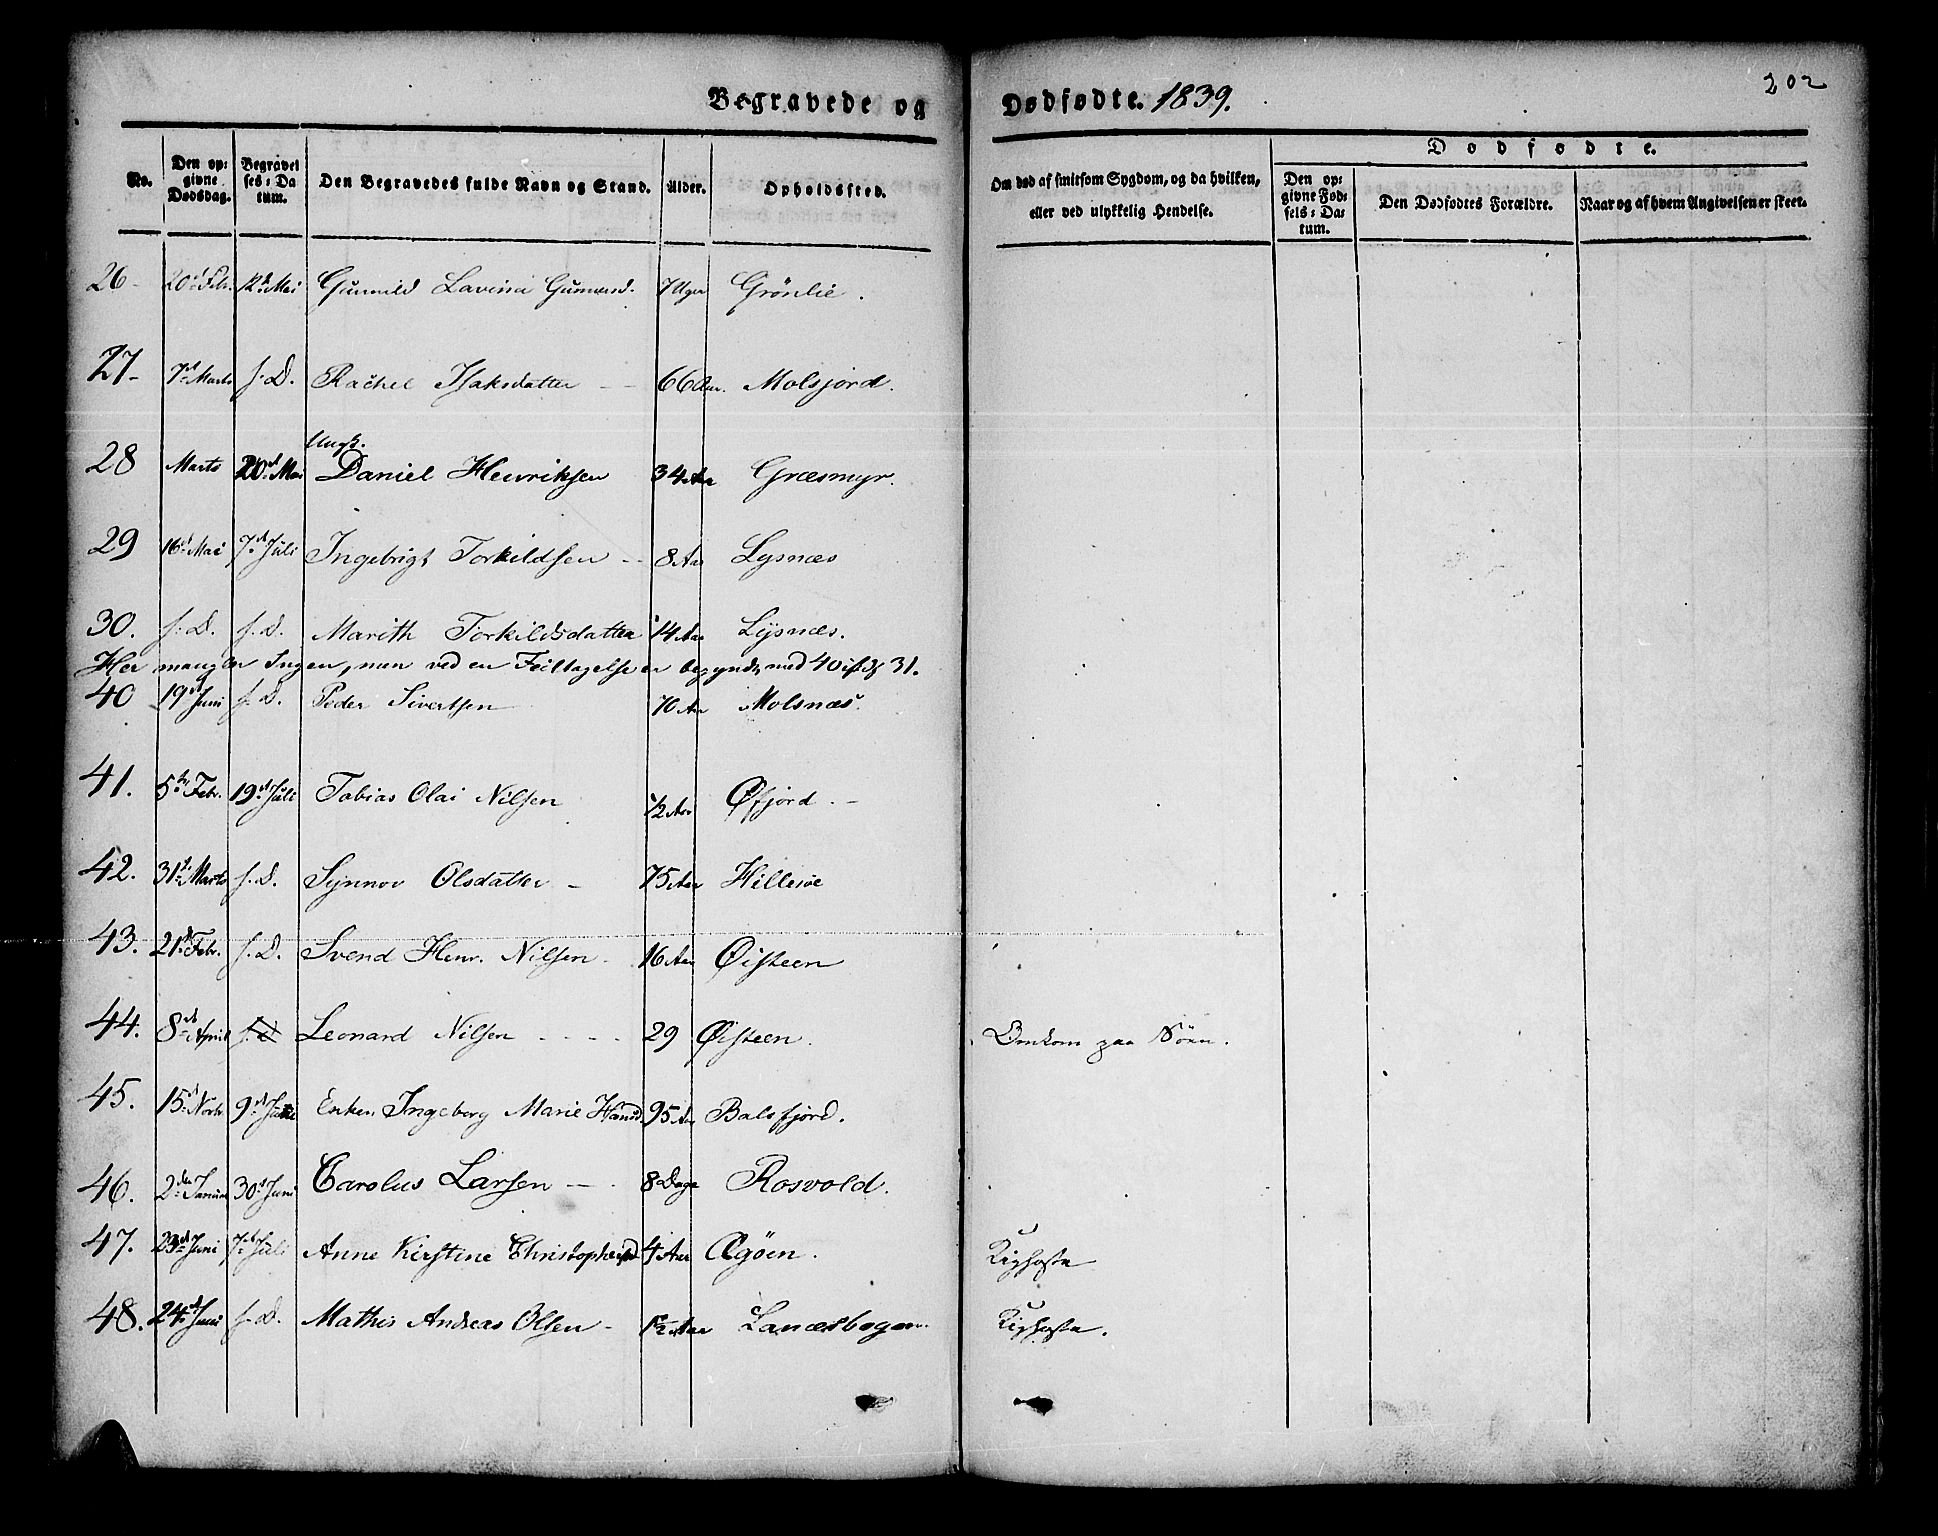 Begravede og
Dødfødte. 1839.
202
No.
Den op:
givne
Dødsdag.
Begravel
ses: Da
tum.
Den Begravedes fulde Navn og Stand.
Alder.
Opholdssted.
Om død af smitsom Sygdom, og da hvilken,
eller ved ulykkelig Hendelse.
Dødfødte.
Den op:
givne Fød:
sels: Da:
tum.
Den Dødfødtes Forældre.
Naar og af hvem Angivelsen er skeet.
26 - 20d Febr. 12d Mai Gunnild Lavina Gunnersd. 7 Uger Grönlie.
27 - 7d Marts s. D. Rachel Isaksdatter - - 66 Aar. Molsjord.
Ungk.
28 Marts 20d Mai Daniel Henriksen 34 Aar Græsmyr.
29 16d Mai 7d Juli Ingebrigt Torkildsen - - 8 Aar Lysnæs
30. s. D. s. D. Marith Torkildsdatter 14 Aar Lysnæs.
Her mangler Ingen, men ved en Feiltagelse er begyndt med 40 istdf 31.
40 19d Juni s. D. Peder Sivertsen 70 Aar Molsnæs.
41. 5te Febr. 19d Juli Tobias Olai Nilsen 1/2 Aar Øfjord. -
42. 31te Marts s. D. Synnov Olsdatter - 75 Aar Hillesøe
43. 21d Febr. s. D. Svend Henr. Nilsen - 16 Aar Øisteen
44. 8d April s. d Leonard Nilsen - - - - 29 Øisteen. Omkom paa Söen.
45. 15d Novbr 9d Juli Enken Ingeborg Marie Hansd. 95 Aar Balsfjord.
46. 2den Januar 30d Juni Carolus Larsen - - . 8 Dage Rosvold.
47. 23d Juni 7d Juli Anne Kirstine Christophersd 4 Aar Øegöen. Kighoste
48. 24d Juni s. D. Mathis Andreas Olsen - 1 1/2 Aar Lanæsbogen. Kighoste.